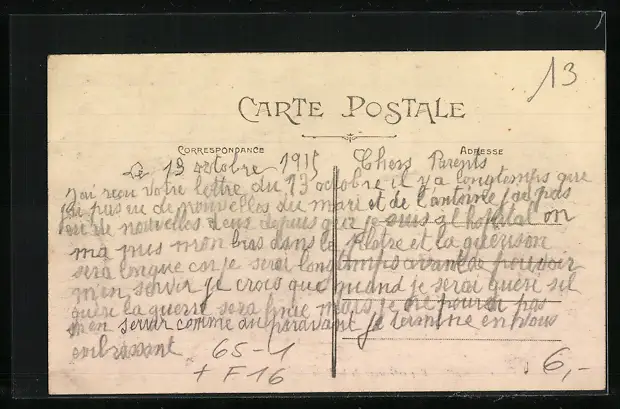 13
CARTE POSTALE
CORRESPONDANCE
ADRESSE
Le 13 octobre 1915 Chers Parents
J'ai reçu votre lettre du 13 octobre il y a longtemps que
j'ai pas eu de nouvelles du mari et de l'antoine j'ai pas
eu de nouvelles deus depuis que je suis a l hopital on
ma mis mon bras dans le platre et la guerison
sera longue car je serai longtemps avant de pouvoir
m'en servir je crois que quand je serai gueri
guere la guerre sera finie mais je ne pourrai pas
men servir comme auparavant je termine en vous
embrassant
65-1
+ F16
6,-